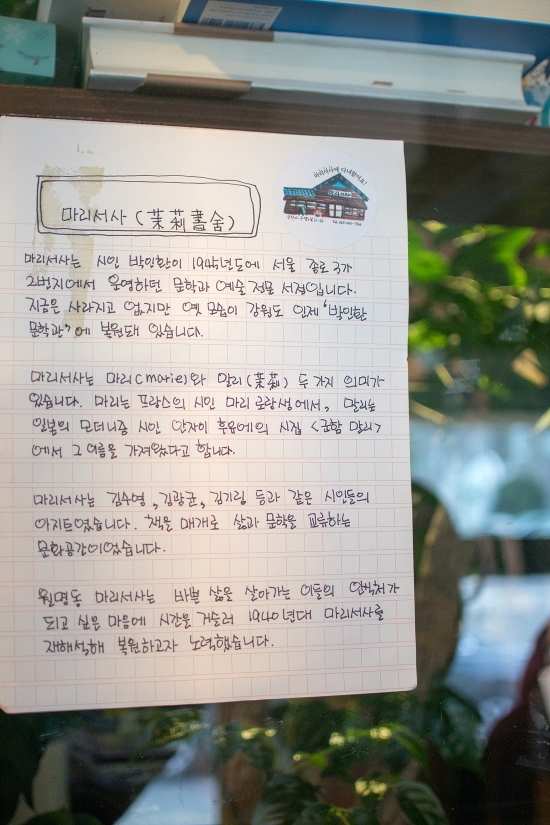 마리서사에 다녀왔어요!
마리서사
마리서사 (茉莉書舍)
마리서사는 시인 박인환이 1945년도에 서울 종로 3가
2번지에서 운영하던 문학과 예술 전문 서점입니다.
지금은 사라지고 없지만 옛 모습이 강원도 인제 '박인환
문학관'에 복원돼 있습니다.
마리서사는 마리(marie)와 말리(茉莉) 두 가지 의미가
있습니다. 마리는 프랑스의 시인 마리 로랑생에서, 말리는
일본의 모더니즘 시인 안자이 후유에의 시집 <군함 말리>
에서 그 이름을 가져왔다고 합니다.
마리서사는 김수영, 김광균, 김기림 등과 같은 시인들의
아지트였습니다. 책을 매개로 삶과 문학을 교류하는
문화공간이었습니다.
월명동 마리서사는 바쁜 삶을 살아가는 이들의 안식처가
되고 싶은 마음에 시간을 거슬러 1940년대 마리서사를
재해석해 복원하고자 노력했습니다.